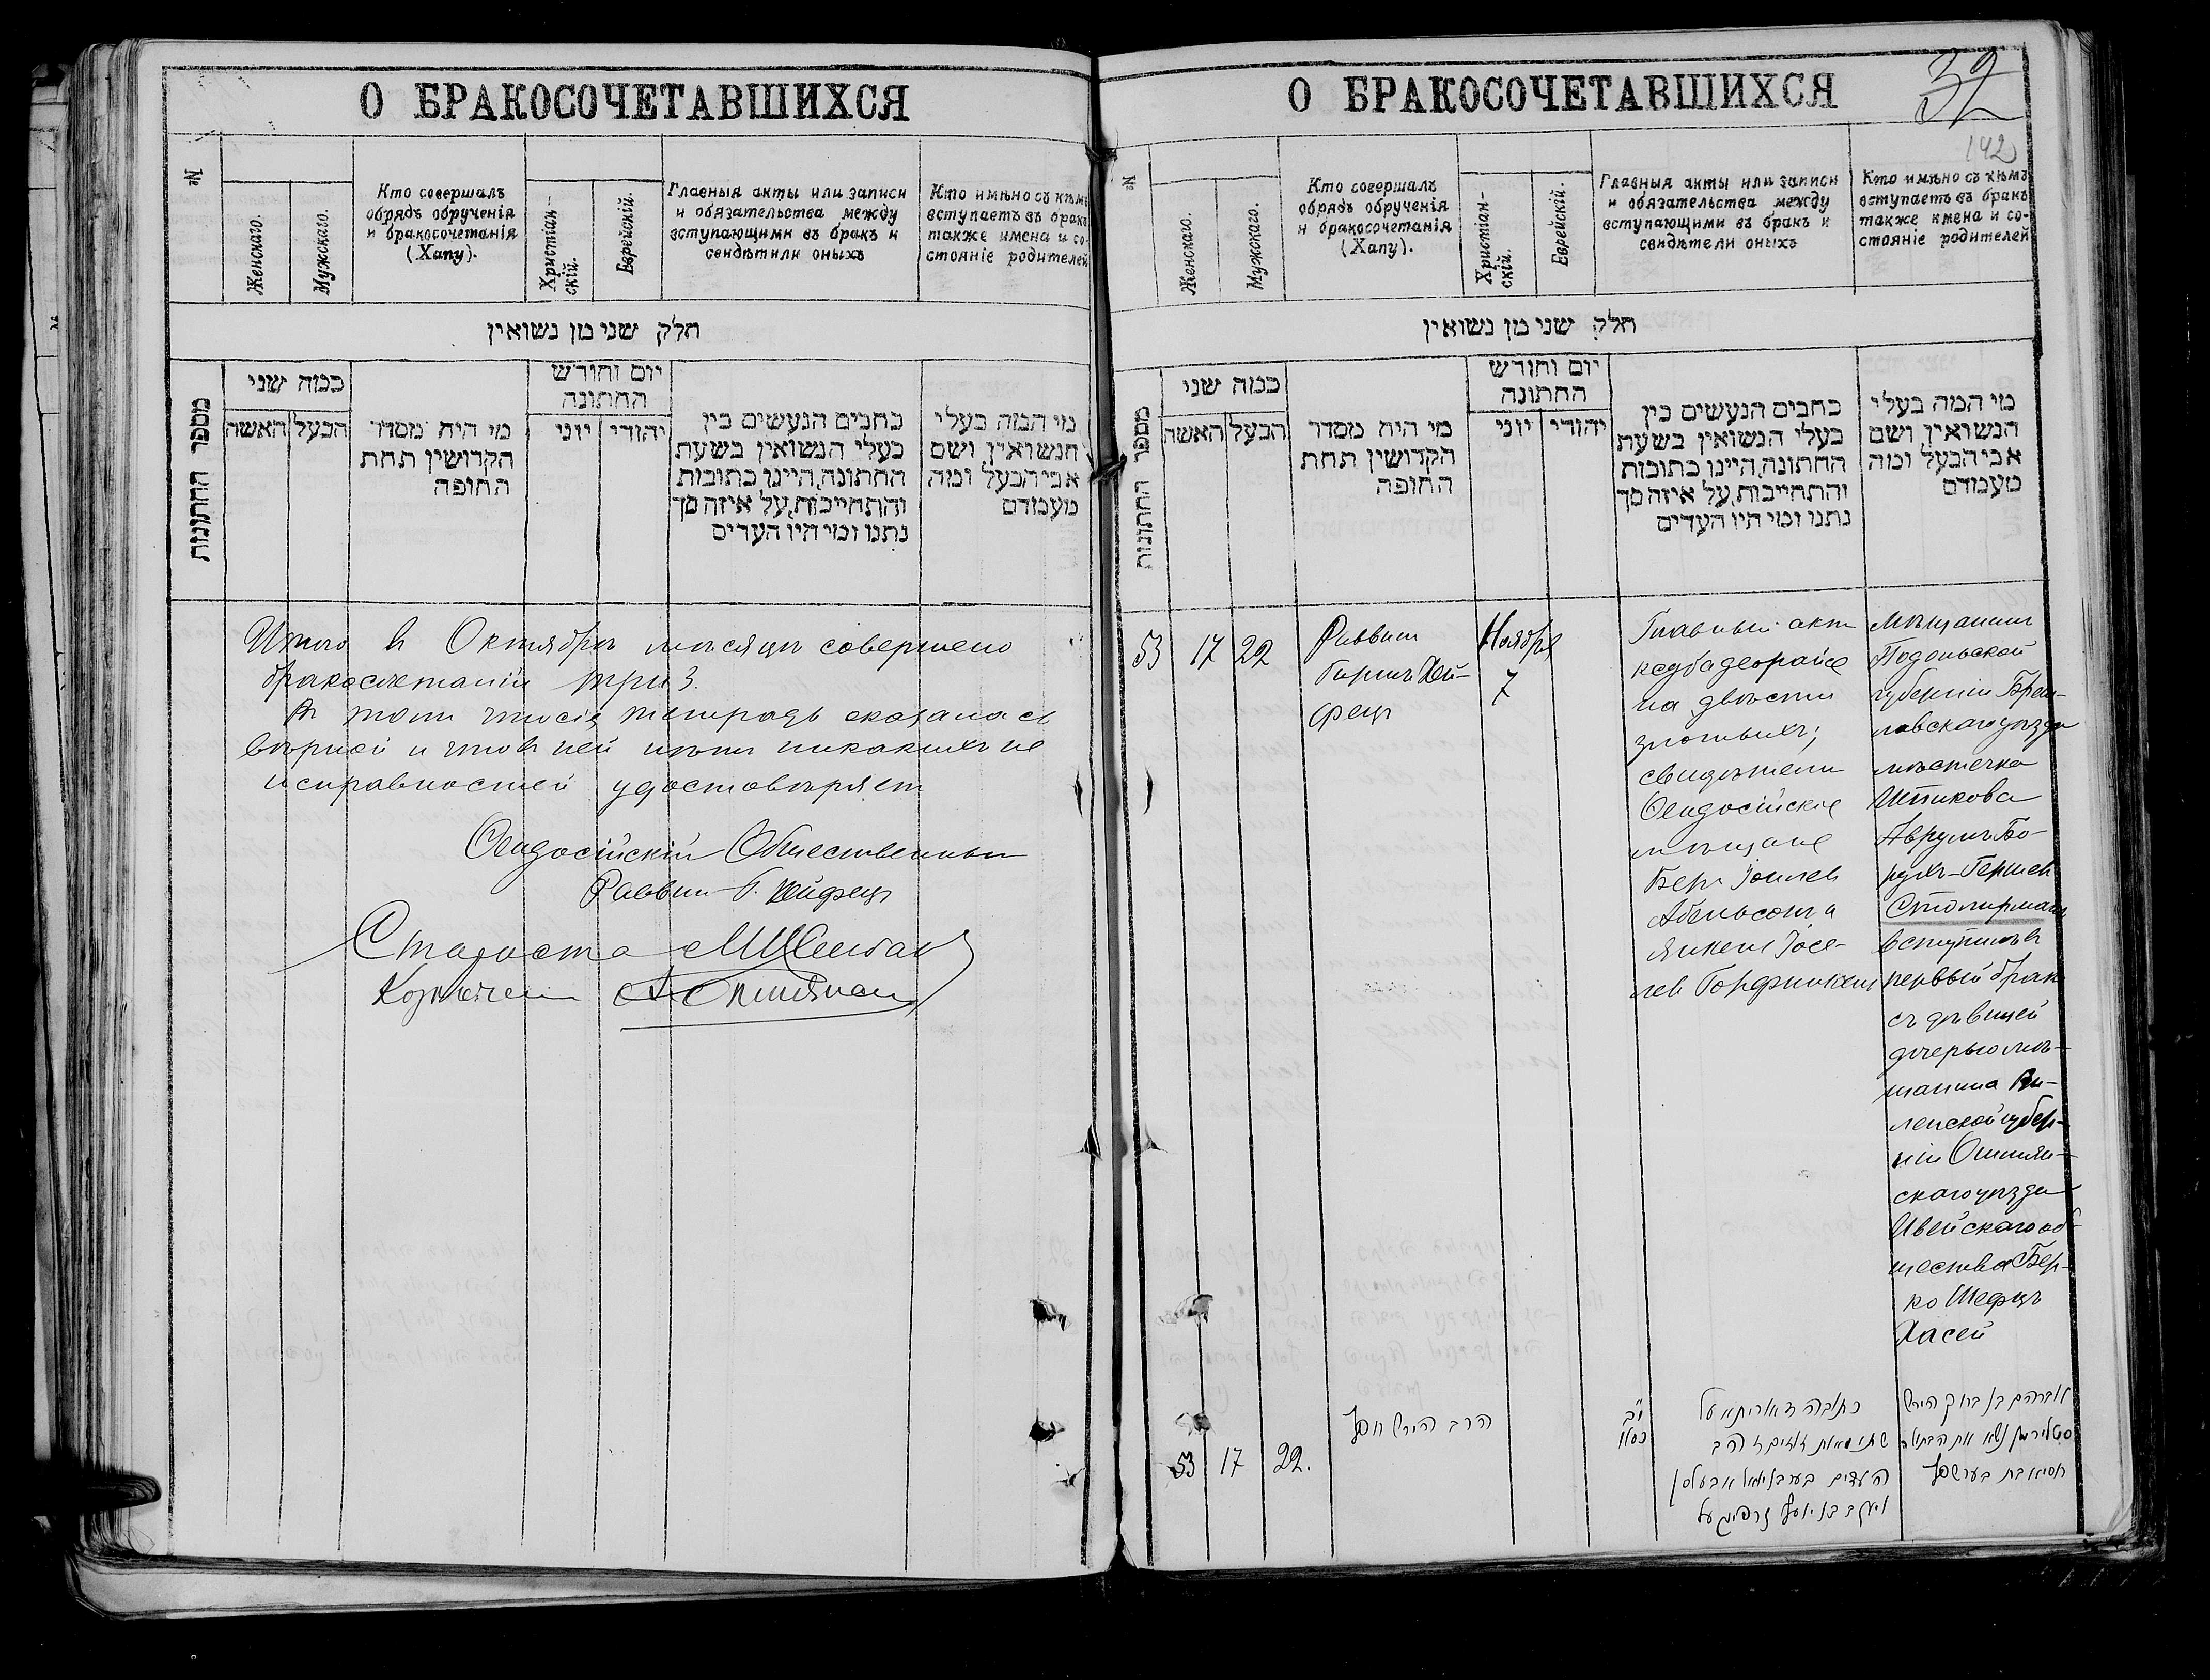 О БРАКОСОЧЕТАВШИХСЯ
№
Женскаго.
Мужскаго.
Кто совершалъ
обрядъ обрученія
и бракосочетанія
(Хапу).
Христіан-
скій.
Еврейскій.
Главныя акты или записи
и обязательства между
вступающими въ бракъ и
свидѣтили оныхъ
Кто имѣно съ кѣмъ
вступаетъ въ бракъ
также имена и со-
стояніе родителей
חלק שני מן נשואין
מספר החתונות
כמה שני
האשה
הבעל
מי היה מסדר
הקדושין תחת
החופה
יום וחורש
החתונה
יוני
יהודי
כתבים הנעשים בין
בעלי הנשואין בשעת
החתונה, היינו כתובות
והתחייבות, על איזה סך
נתנו ומי היו העדים
מי המה בעלי
הנשואין ושם
אבי הבעל ומה
מעמדם
Итого въ Октябрѣ мѣсяцѣ совершено
бракосочетаній три 3.
А что сія тетрадь оказалась
вѣрной и что въ ней нѣтъ никакихъ не
исправностей удостовѣряет
Ѳеодосійскій Общественный
Раввинъ Г. Хейфецъ
Староста
Казначей
О БРАКОСОЧЕТАВШИХСЯ
32
142
№
Женскаго.
Мужскаго.
Кто совершалъ
обрядъ обрученія
и бракосочетанія
(Хапу).
Христіан-
скій.
Еврейскій.
Главныя акты или записи
и обязательства между
вступающими въ бракъ и
свидѣтели оныхъ
Кто имѣно съ кѣмъ
вступаетъ въ бракъ
также имена и со-
стояніе родителей
חלק שני מן נשואין
מספר החתונות
כמה שני
האשה
הבעל
מי היה מסדר
הקדושין תחת
החופה
יום וחורש
החתונה
יוני
יהודי
כתבים הנעשים בין
בעלי הנשואין בשעת
החתונה, היינו כתובות
והתחייבות, על איזה סך
נתנו ומי היו העדים
מי המה בעלי
הנשואין ושם
אבי הבעל ומה
מעמדם
53 17 22
Раввинъ
Гиршъ Хей-
фецъ
Ноября
7
Главный актъ
кедбадеорайсе
на двѣсти
злотыхъ;
свидѣтели
Ѳеодосійскіе
мѣщане
Беръ Іоилев
Абельсонъ и
Янкель Іосе-
лев Горфинкель
Мѣщанинъ
Подольской
губерніи Брац-
лавскаго уѣзда
мѣстечка
Шпикова
Аврумъ Бо-
рухъ-Гершев
Столирманъ
вступилъ въ
первый бракъ
съ дѣвицей
дочерью мѣ-
щанина Ви-
ленской губер-
ніи Ошмян-
скаго уѣзда
Ивейскаго об-
щества Бер-
ко Шефцъ
Хасей
53 17 22.
הרב הירש חפץ
י״ב
כסלו
כתובה דאורייתא על
שתי מאות זוזים זהב
העדים בער בן יואל אבעלסן
ויעקב בן יוסף גרפינקעל
אברהם בן ברוך הירש
סטלירמן נשא את הבתולה
חסיא בת בער שפץ